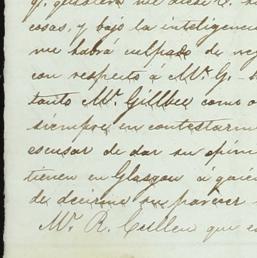 cosas, y bajo la inteligenci
me habrá culpado de ne
con respecto á Mr. G.
tanto Mr. Gillbee como o
siempre en contestarm
escusar de dar su opini
tienen en Glasgow á quié
de decirme su parecer
Mr. R. Cullen que e